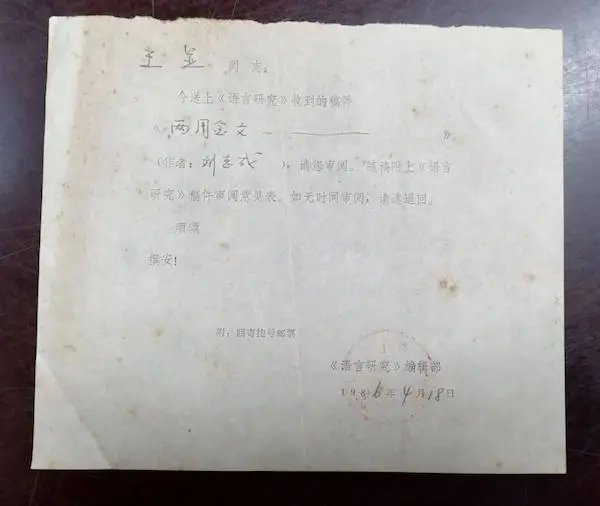 同志：
今送上《语言研究》收到的稿件
《两周金文 — 》
（作者： ），请您审阅。随稿附上《语言
研究》稿件审阅意见表。如无时间审阅，请速退回。
顺颂
撰安！
附：回寄挂号邮票
《语言研究》编辑部
1986年4月18日